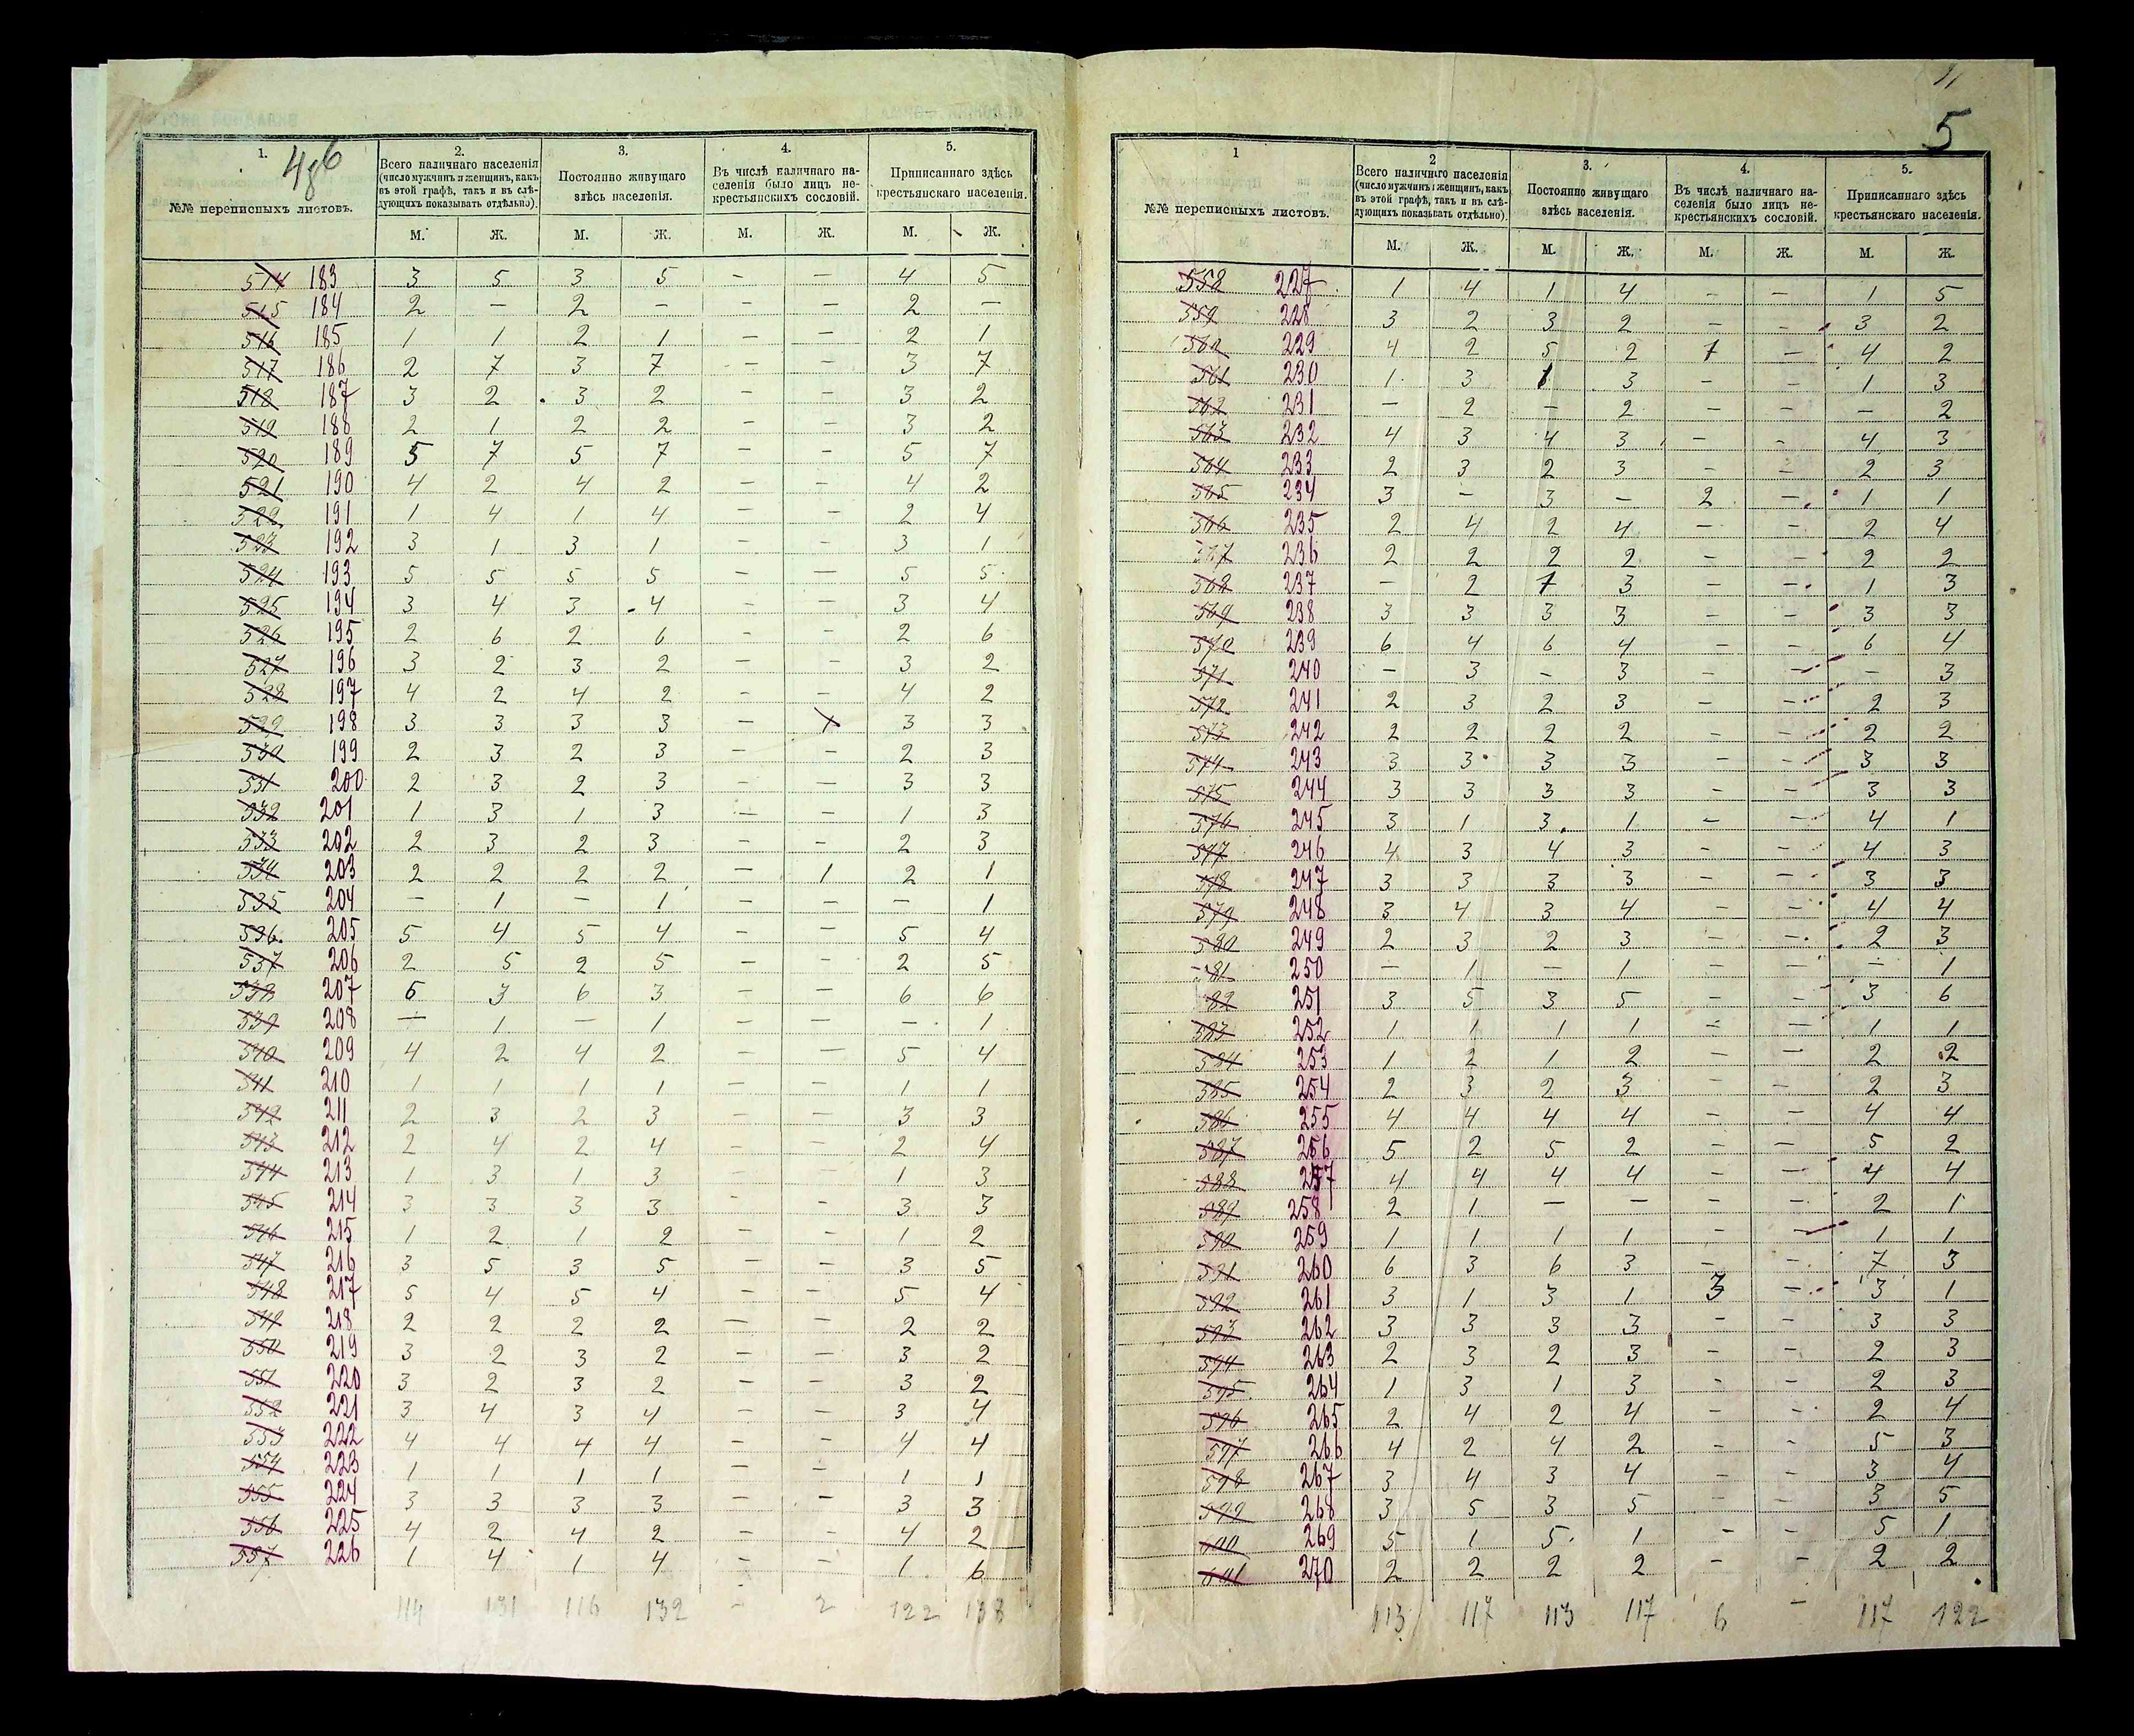 1. 486
№№ переписныхъ листовъ.
2. Всего наличнаго населенія (число мужчинъ и женщинъ, какъ въ этой графѣ, такъ и въ слѣдующихъ показывать отдѣльно).
3. Постоянно живущаго здѣсь населенія.
4. Въ числѣ наличнаго населенія было лицъ некрестьянскихъ сословій.
5. Приписаннаго здѣсь крестьянскаго населенія.
М. Ж. М. Ж. М. Ж. М. Ж.
514 183 3 5 3 5 - - 4 5
515 184 2 - 2 - - - 2 -
516 185 1 1 2 1 - - 2 1
517 186 2 7 3 7 - - 3 7
518 187 3 2 3 2 - - 3 2
519 188 2 1 2 2 - - 3 2
520 189 5 7 5 7 - - 5 7
521 190 4 2 4 2 - - 4 2
522 191 1 4 1 4 - - 2 4
523 192 3 1 3 1 - - 3 1
524 193 5 5 5 5 - - 5 5
525 194 3 4 3 4 - - 3 4
526 195 2 6 2 6 - - 2 6
527 196 3 2 3 2 - - 3 2
528 197 4 2 4 2 - - 4 2
529 198 3 3 3 3 - 3 3
530 199 2 3 2 3 - - 2 3
531 200 2 3 2 3 - - 3 3
532 201 1 3 1 3 - - 1 3
533 202 2 3 2 3 - - 2 3
534 203 2 2 2 2 - 1 2 1
535 204 - 1 - 1 - - - 1
536 205 5 4 5 4 - - 5 4
537 206 2 5 2 5 - - 2 5
538 207 6 3 6 3 - - 6 6
539 208 - 1 - 1 - - - 1
540 209 4 2 4 2 - - 5 4
541 210 1 1 1 1 - - 1 1
542 211 2 3 2 3 - - 3 3
543 212 2 4 2 4 - - 2 4
544 213 1 3 1 3 - - 1 3
545 214 3 3 3 3 - - 3 3
546 215 1 2 1 2 - - 1 2
547 216 3 5 3 5 - - 3 5
548 217 5 4 5 4 - - 5 4
549 218 2 2 2 2 - - 2 2
550 219 3 2 3 2 - - 3 2
551 220 3 2 3 2 - - 3 2
552 221 3 4 3 4 - - 3 4
553 222 4 4 4 4 - - 4 4
554 223 1 1 1 1 - - 1 1
555 224 3 3 3 3 - - 3 3
556 225 4 2 4 2 - - 4 2
557 226 1 4 1 4 - - 1 6
114 131 116 132 - 2 122 138
5
1
№№ переписныхъ листовъ.
2 Всего наличнаго населенія (число мужчинъ и женщинъ, какъ въ этой графѣ, такъ и въ слѣдующихъ показывать отдѣльно).
3. Постоянно живущаго здѣсь населенія.
4. Въ числѣ наличнаго населенія было лицъ некрестьянскихъ сословій.
5. Приписаннаго здѣсь крестьянскаго населенія.
М. Ж. М. Ж. М. Ж. М. Ж.
558 227 1 4 1 4 - - 1 5
559 228 3 2 3 2 - - 3 2
560 229 4 2 5 2 1 - 4 2
561 230 1 3 1 3 - - 1 3
562 231 - 2 - 2 - - - 2
563 232 4 3 4 3 - - 4 3
564 233 2 3 2 3 - - 2 3
565 234 3 - 3 - 2 - 1 1
566 235 2 4 2 4 - - 2 4
567 236 2 2 2 2 - - 2 2
568 237 - 2 1 3 - - 1 3
569 238 3 3 3 3 - - 3 3
570 239 6 4 6 4 - - 6 4
571 240 - 3 - 3 - - - 3
572 241 2 3 2 3 - - 2 3
573 242 2 2 2 2 - - 2 2
574 243 3 3 3 3 - - 3 3
575 244 3 3 3 3 - - 3 3
576 245 3 1 3 1 - - 4 1
577 246 4 3 4 3 - - 4 3
578 247 3 3 3 3 - - 3 3
579 248 3 4 3 4 - - 4 4
580 249 2 3 2 3 - - 2 3
581 250 - 1 - 1 - - - 1
582 251 3 5 3 5 - - 3 6
583 252 1 1 1 1 - - 1 1
584 253 1 2 1 2 - - 2 2
585 254 2 3 2 3 - - 2 3
586 255 4 4 4 4 - - 4 4
587 256 5 2 5 2 - - 5 2
588 257 4 4 4 4 - - 4 4
589 258 2 1 - - - - 2 1
590 259 1 1 1 1 - - 1 1
591 260 6 3 6 3 - - 7 3
592 261 3 1 3 1 3 - 3 1
593 262 3 3 3 3 - - 3 3
594 263 2 3 2 3 - - 2 3
595 264 1 3 1 3 - - 2 3
596 265 2 4 2 4 - - 2 4
597 266 4 2 4 2 - - 5 3
598 267 3 4 3 4 - - 3 4
599 268 3 5 3 5 - - 3 5
600 269 5 1 5 1 - - 5 1
601 270 2 2 2 2 - - 2 2
113 117 113 117 6 - 117 122